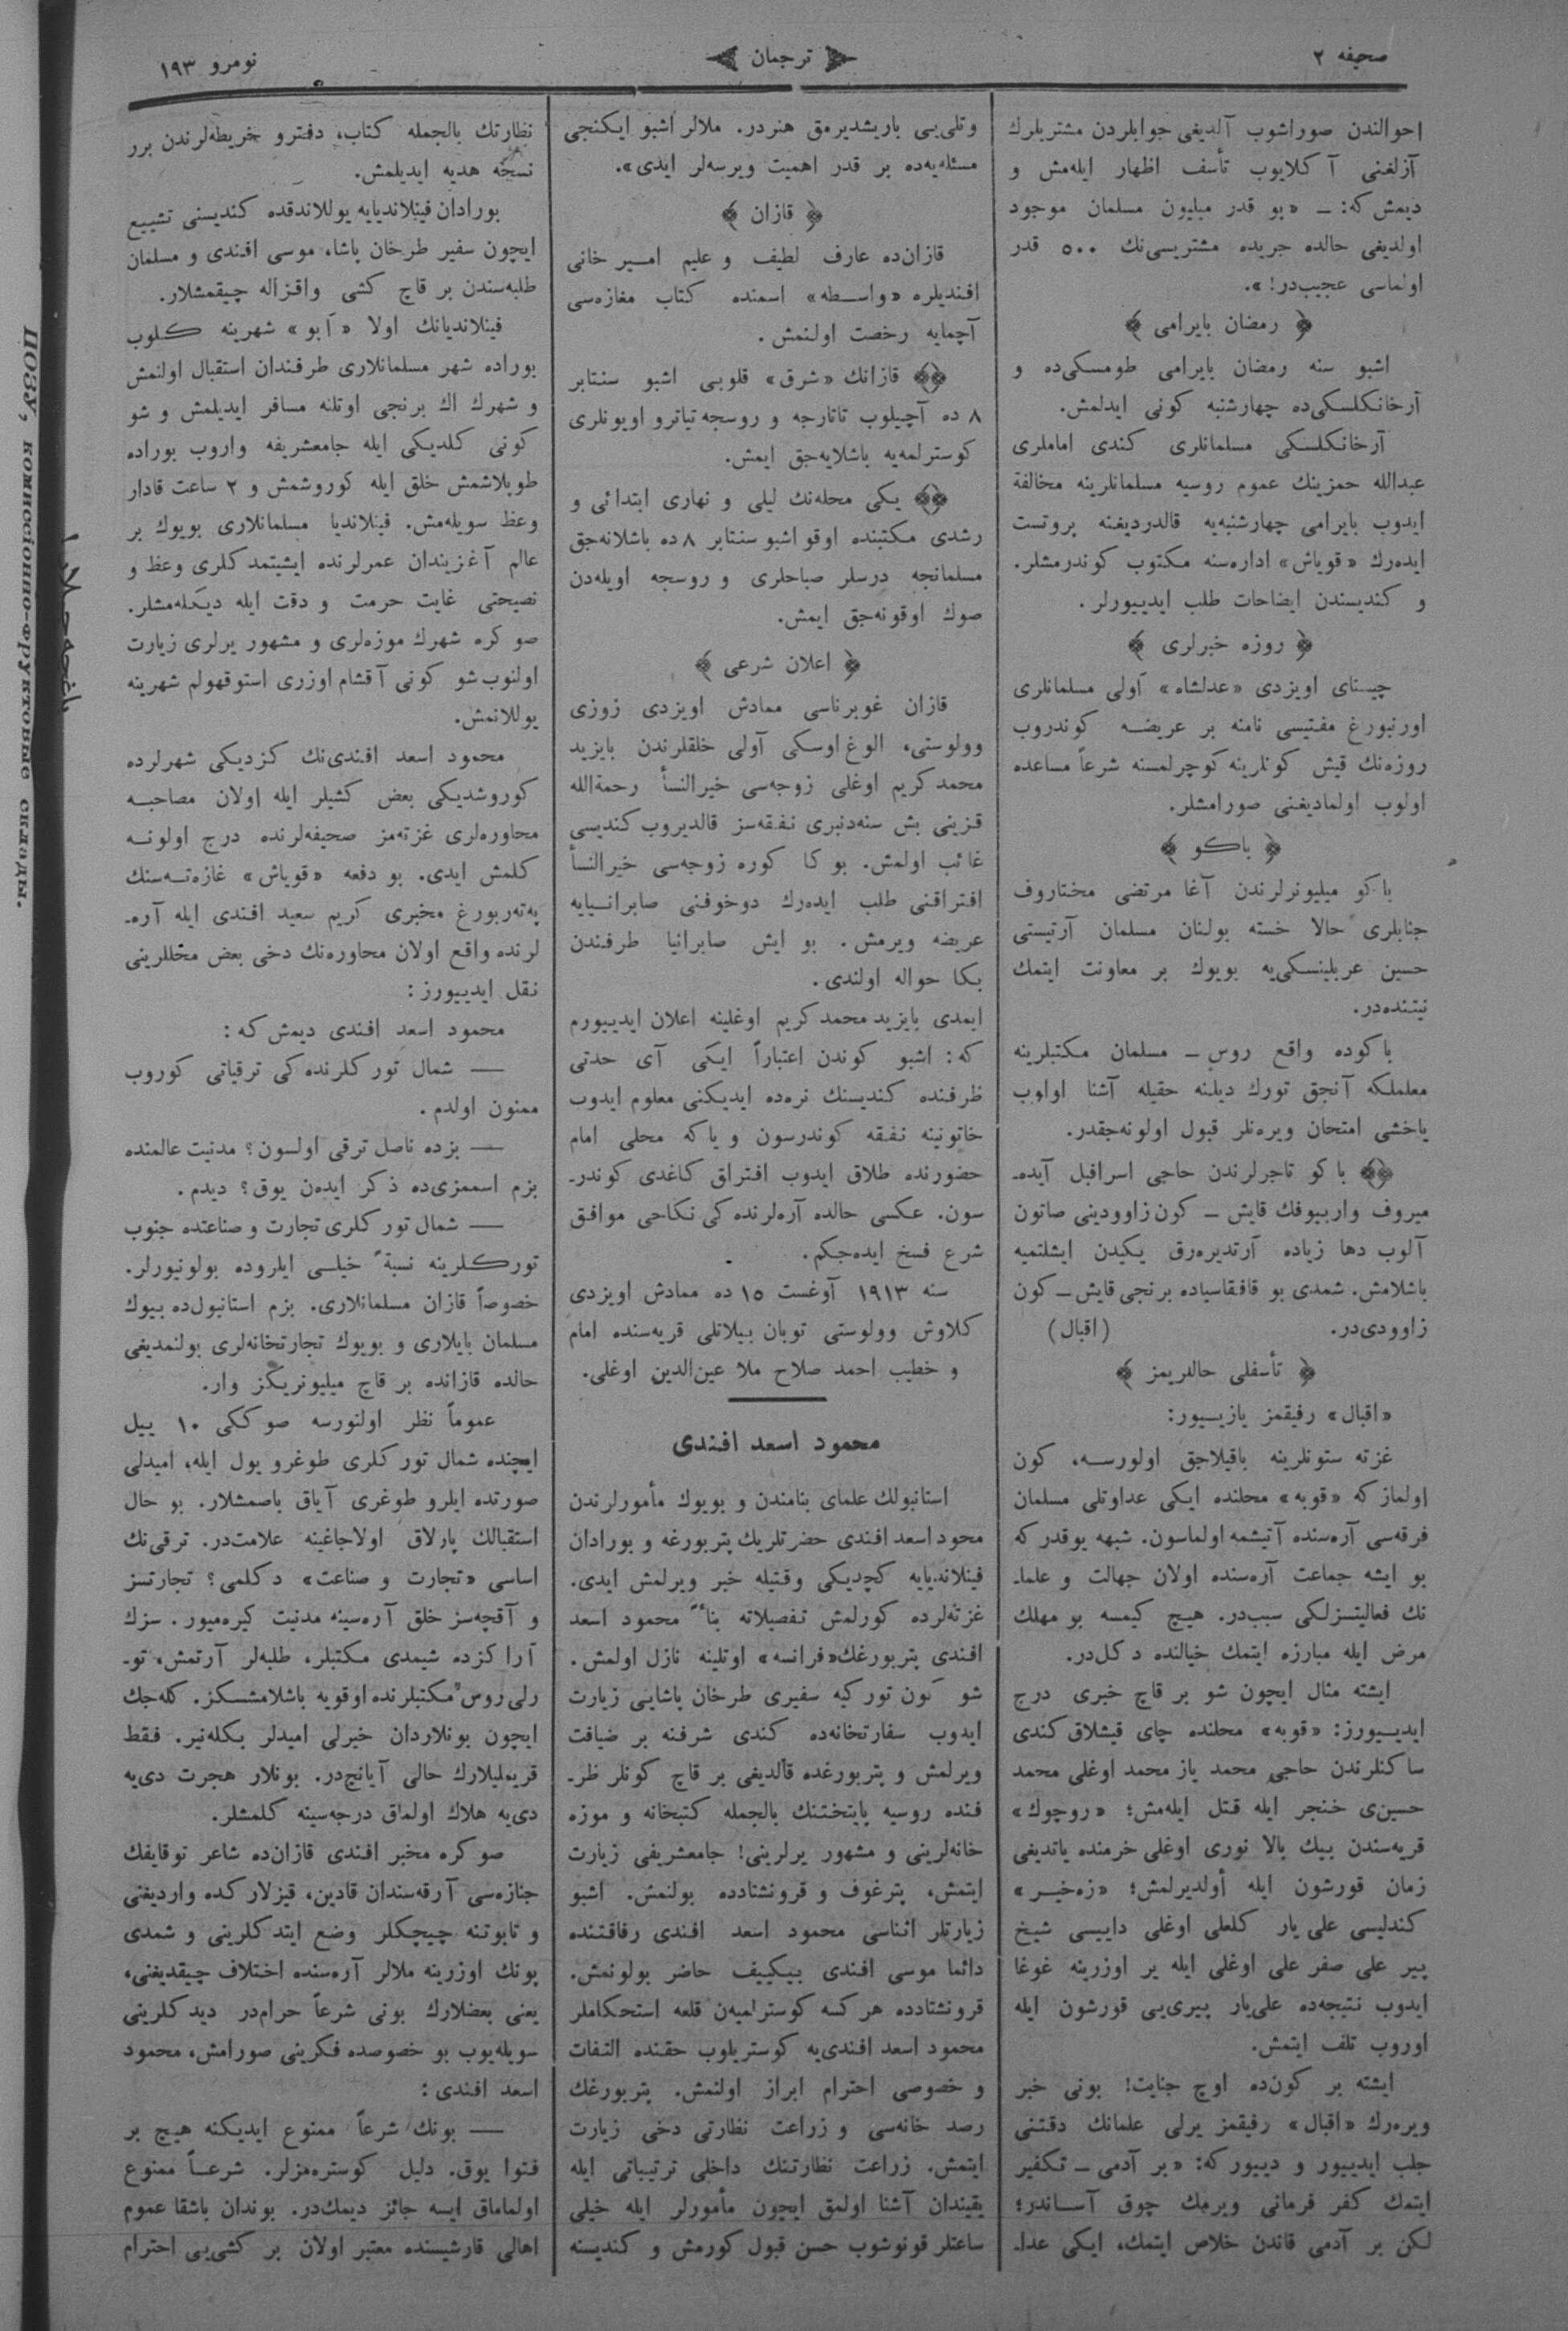 صحیفه ٢
ترجمان
نومرو ١٩٣
احوالندن صوراشوب آلدیغی جوابلردن مشتریلرك
آزلغنی آكلایوب تأسف اظهار ایله‌مش و
دیمش كه: ــ «بو قدر میلیون مسلمان موجود
اولدیغی حالده جریده مشتریسی‌نك ٥٠٠ قدر
اولماسی عجیب‌در!».
﴿ رمضان بایرامی ﴾
اشبو سنه رمضان بایرامی طومسكی‌ده و
آرخانكلسكی‌ده چهارشنبه كونی ایدلمش.
آرخانكلسكی مسلمانلری كندی اماملری
عبدالله حمزینك عموم روسیه مسلمانلرینه مخالفة
ایدوب بایرامی چهارشنبه‌یه قالدردیغنه پروتست
ایده‌رك «قویاش» اداره‌سنه مكتوب كوندرمشلر.
و كندیسندن ایضاحات طلب ایدییورلر.
﴿ روزه خبرلری ﴾
چیستای اویزدی «عدلشاه» آولی مسلمانلری
اورنبورغ مفتیسی نامنه بر عریضـه كوندروب
روزه‌نك قیش كونلرینه كوچرلمسنه شرعاً مساعده
اولوب اولمادیغنی صورامشلر.
﴿ باكو ﴾
باكو میلیونرلرندن آغا مرتضی مختاروف
جنابلری حالا خسته بولنان مسلمان آرتیستی
حسین عربلینسكی‌یه بویوك بر معاونت ایتمك
نیتنده‌در.
باكوده واقع روس ــ مسلمان مكتبلرینه
معلملكه آنجق تورك دیلنه حقیله آشنا اولوب
یاخشی امتحان ویره‌نلر قبول اولونه‌جقدر.
﴿﴾ باكو تاجرلرندن حاجی اسرافیل آیده‌ـ
میروف واربیوفك قایش ــ كون زاوودینی صاتون
آلوب دها زیاده آرتدیره‌رق یكیدن ایشلتمیه
باشلامش. شمدی بو قافقاسیاده برنجی قایش ــ كون
زاوودی‌در. (اقبال)
﴿ تأسفلی حاللریمز ﴾
«اقبال» رفیقمز یازیـیور:
غزته ستونلرینه باقیلاجق اولورسـه، كون
اولمازكه «قوبه» محلنده ایكی عداوتلی مسلمان
فرقه‌سی آره‌سنده آتیشمه اولماسون. شبهه یوقدركه
بو ایشه جماعت آره‌سنده اولان جهالت و علماـ
نك فعالیتسزلكی سبب‌در. هیچ كیمسه بو مهلك
مرض ایله مبارزه ایتمك خیالنده دكل‌در.
ایشته مثال ایچون شو بر قاچ خبری درج
ایدیـیورز: «قوبه» محلنده چای قیشلاق كندی
ساكنلرندن حاجی محمد یاز محمد اوغلی محمد
حسین‌ی خنجر ایله قتل ایله‌مش؛ «روچوك»
قریه‌سندن بیك بالا نوری اوغلی خرمنده یاتدیغی
زمان قورشون ایله أولدیرلمش؛ «زه‌خیـر»
كندلیسی علی یار كلعلی اوغلی داییسی شیخ
پیر علی صفر علی اوغلی ایله یر اوزرینه غوغا
ایدوب نتیجه‌ده علی‌یار پیری‌یی قورشون ایله
اوروب تلف ایتمش.
ایشته بر كون‌ده اوچ جنایت! بونی خبر
ویره‌رك «اقبال» رفیقمز یرلی علمانك دقتنی
جلب ایدییور و دییوركه: «بر آدمی ــ تكفیر
ایتمك كفر فرمانی ویرمك چوق آسـاندر؛
لكن بر آدمی قاندن خلاص ایتمك، ایكی عداـ
وتلی‌یی باریشدیرمق هنردر. ملالر اشبو ایكنجی
مسئله‌یه‌ده بر قدر اهمیت ویرسه‌لر ایدی».
﴿ قازان ﴾
قازان‌ده عارف لطیف و علیم امـیر خانی
افندیلره «واسـطه» اسمنده كتاب مغازه‌سی
آچمایه رخصت اولنمش.
﴿﴾ قازانك «شرق» قلوبی اشبو سنتابر
٨ ده آچیلوب تاتارجه و روسجه تیاترو اویونلری
كوسترلمه‌یه باشلایه‌جق ایمش.
﴿﴾ یكی محله‌نك لیلی و نهاری ابتدائی و
رشدی مكتبنده اوقو اشبو سنتابر ٨ ده باشلانه‌جق
مسلمانجه درسلر صباحلری و روسجه اویله‌دن
صوك اوقونه‌جق ایمش.
﴿ اعلان شرعی ﴾
قازان غوبرناسی ممادش اویزدی زوزی
وولوستی، الوغ اوسكی آولی خلقلرندن بایزید
محمدكریم اوغلی زوجه‌سی خیرالنسأ رحمةالله
قزینی بش سنه‌دنبری نفقه‌سز قالدیروب كندیسی
غائب اولمش. بوكا كوره زوجه‌سی خیرالنسأ
افتراقنی طلب ایده‌رك دوخوفنی صابرانـیایه
عریضه ویرمش. بو ایش صابرانیا طرفندن
بكا حواله اولندی.
ایمدی بایزید محمدكریم اوغلینه اعلان ایدییورم
كه: اشبو كوندن اعتباراً ایكی آی حدتی
ظرفنده كندیسنك نره‌ده ایدیكنی معلوم ایدوب
خاتونینه نفقه كوندرسون و یاكه محلی امام
حضورنده طلاق ایدوب افتراق كاغدی كوندرـ
سون. عكسی حالده آره‌لرنده كی نكاحی موافق
شرع فسخ ایده‌جكم.
سنه ١٩١٣ آوغست ١٥ ده ممادش اویزدی
كلاوش وولوستی توبان بیلاتلی قریه‌سنده امام
و خطیب احمد صلاح ملا عین‌الدین اوغلی.
محمود اسعد افندی
استانبولك علمای بنامندن و بویوك مأمورلرندن
محمود اسعد افندی حضرتلریك پتربورغه و بورادان
فینلاندیایه كچدیكی وقتیله خبر ویرلمش ایدی.
غزته‌لرده كورلمش تفصیلاته بنأً محمود اسعد
افندی پتربورغك «فرانسه» اوتلینه نازل اولمش.
شو كون توركیه سفیری طرخان پاشایی زیارت
ایدوب سفارتخانه‌ده كندی شرفنه بر ضیافت
ویرلمش و پتربورغده قالدیغی بر قاچ كونلر ظرـ
فنده روسیه پایتختنك بالجمله كتبخانه و موزه
خانه‌لرینی و مشهور یرلرینی! جامعشریفی زیارت
ایتمش، پترغوف و قرونشتادده بولنمش. اشبو
زیارتلر اثناسی محمود اسعد افندی رفاقتنده
دائما موسی افندی بیكییف حاضر بولونمش.
قرونشتادده هر كسه كوسترلمیه‌ن قلعه استحكاملر
محمود اسعد افندی‌یه كوستریلوب حقنده التفات
و خصوصی احترام ابراز اولنمش. پتربورغك
رصد خانه‌سی و زراعت نظارتی دخی زیارت
ایتمش. زراعت نظارتنك داخلی ترتیباتی ایله
یقیندان آشنا اولمق ایچون مأمورلر ایله خیلی
ساعتلر قونوشوب حسن قبول كورمش و كندیسنه
نظارتك بالجمله كتاب، دفترو خریطه‌لرندن برر
نسخه هدیه ایدیلمش.
بورادان فینلاندیایه یوللاندقده كندیسنی تشییع
ایچون سفیر طرخان پاشا، موسی افندی و مسلمان
طلبه‌سندن بر قاچ كشی واقزاله چیقمشلار.
فینلاندیانك اولا «آبو» شهرینه كلوب
بوراده شهر مسلمانلاری طرفندان استقبال اولنمش
و شهرك اك برنجی اوتلنه مسافر ایدیلمش و شو
كونی كلدیكی ایله جامعشریفه واروب بوراده
طوپلاشمش خلق ایله كوروشمش و ٢ ساعت قادار
وعظ سویله‌مش. فینلاندیا مسلمانلاری بویوك بر
عالم آغزیندان عمرلرنده ایشیتمدكلری وعظ و
نصیحتی غایت حرمت و دقت ایله دیكله‌مشلر.
صوكره شهرك موزه‌لری و مشهور یرلری زیارت
اولنوب شو كونی آقشام اوزری استوقهولم شهرینه
یوللانمش.
محمود اسعد افندی‌نك كزدیكی شهرلرده
كوروشدیكی بعض كشیلر ایله اولان مصاحبـه
محاوره‌لری غزته‌مز صحیفه‌لرنده درج اولونـه
كلمش ایدی. بو دفعه «قویاش» غازه‌تـه‌سنك
په‌ته‌ربورغ مخبری كریم سعید افندی ایله آره‌ـ
لرنده واقع اولان محاوره‌نك دخی بعض محللرینی
نقل ایدییورز:
محمود اسعد افندی دیمش كه:
ــ شمال توركلرنده كی ترقیاتی كوروب
ممنون اولدم.
ــ بزده ناصل ترقی اولسون؟ مدنیت عالمنده
بزم اسممزی‌ده ذكر ایده‌ن یوق؟ دیدم.
ــ شمال توركلری تجارت و صناعتده جنوب
توركلرینه نسبةً خیلـی ایلروده بولونیورلر.
خصوصاً قازان مسلمانلاری. بزم استانبول‌ده بیوك
مسلمان بایلاری و بویوك تجارتخانه‌لری بولنمدیغی
حالده قازانده بر قاچ میلیونریكز وار.
عموماً نظر اولنورسه صوككی ١٠ ییل
ایچنده شمال توركلری طوغرو یول ایله، امیدلی
صورتده ایلرو طوغری آیاق باصمشلار. بو حال
استقبالك پارلاق اولاجاغینه علامت‌در. ترقی‌نك
اساسی «تجارت و صناعت» دكلمی؟ تجارتسز
و آقچه‌سز خلق آره‌سینه مدنیت كیره‌میور. سزك
آراكزده شیمدی مكتبلر، طلبه‌لر آرتمش، توـ
رلی روس مكتبلرنده اوقویه باشلامشـكز. كله‌جك
ایچون بونلاردان خیرلی امیدلر بكله‌نیر. فقط
قریملیلارك حالی آیانج‌در. بونلار هجرت دی‌یه
دی‌یه هلاك اولماق درجه‌سینه كلمشلر.
صوكره مخبر افندی قازان‌ده شاعر توقایفك
جنازه‌سی آرقه‌سندان قادین، قیزلاركده واردیغنی
و تابوتنه چیچكلر وضع ایتدكلرینی و شمدی
بونك اوزرینه ملالر آره‌سنده اختلاف چیقدیغنی،
یعنی بعضلارك بونی شرعاً حرام‌در دیدكلرینی
سویله‌یوب بو خصوصده فكرینی صورامش، محمود
اسعد افندی:
ــ بونك شرعاً ممنوع ایدیكنه هیچ بر
فتوا یوق. دلیل كوستره‌مزلر. شرعـاً ممنوع
اولماماق ایسه جائز دیمك‌در. بوندان باشقا عموم
اهالی قارشیسنده معتبر اولان بر كشی‌یی احترام
комиссионно-фруктовые склады.